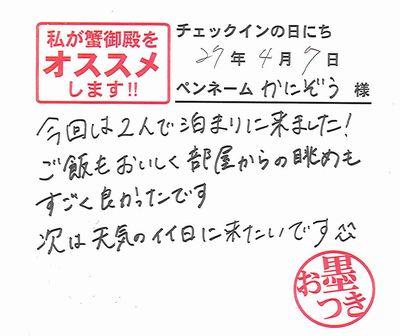 私が蟹御殿を
オススメ
します!!
チェックインの日にち
27年4月7日
ペンネーム かにぞう 様
今回は2人で泊まりに来ました!
ご飯もおいしく部屋からの眺めも
すごく良かったです
次は天気のイイ日に来たいです
お墨つき